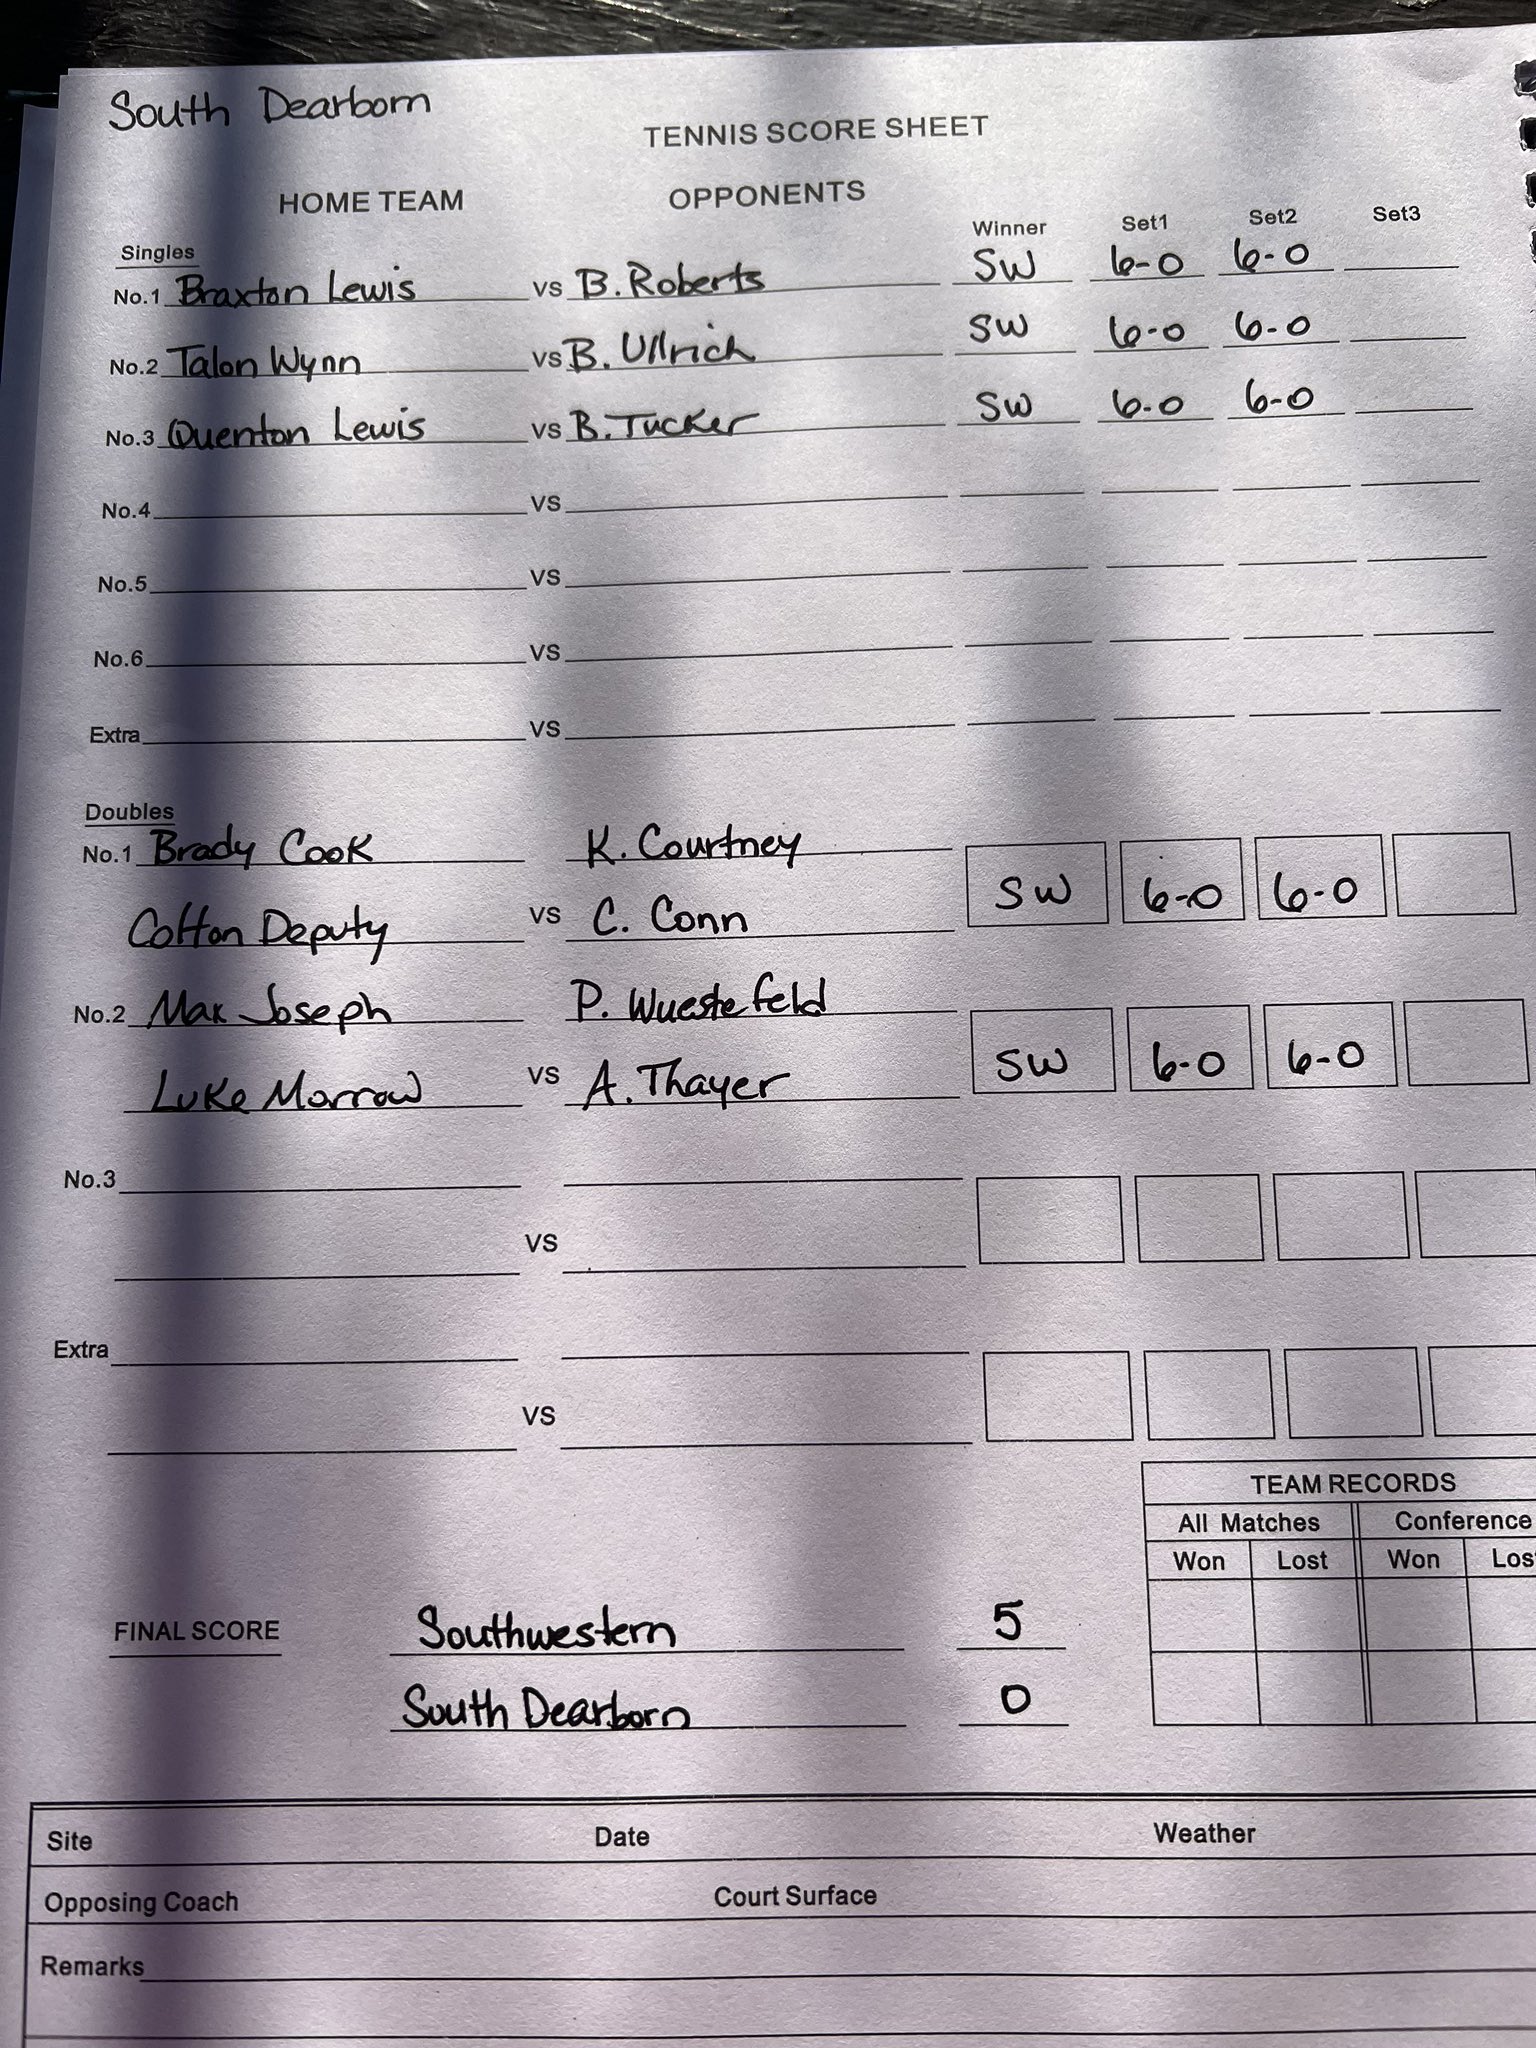 South Dearborn
TENNIS SCORE SHEET
HOME TEAM OPPONENTS
Singles Winner Set1 Set2 Set3
No.1 Braxton Lewis vs B. Roberts SW 6-0 6-0
No.2 Talon Wynn vs B. Ullrich SW 6-0 6-0
No.3 Quenton Lewis vs B. Tucker SW 6-0 6-0
No.4 vs
No.5 vs
No.6 vs
Extra vs
Doubles
No.1 Brady Cook K. Courtney
Colton Deputy vs C. Conn SW 6-0 6-0
No.2 Max Joseph P. Wuestefeld
Luke Morrow vs A. Thayer SW 6-0 6-0
No.3
vs
Extra
vs
TEAM RECORDS
All Matches Conference
Won Lost Won Los
FINAL SCORE Southwestern 5
South Dearborn 0
Site Date Weather
Opposing Coach Court Surface
Remarks